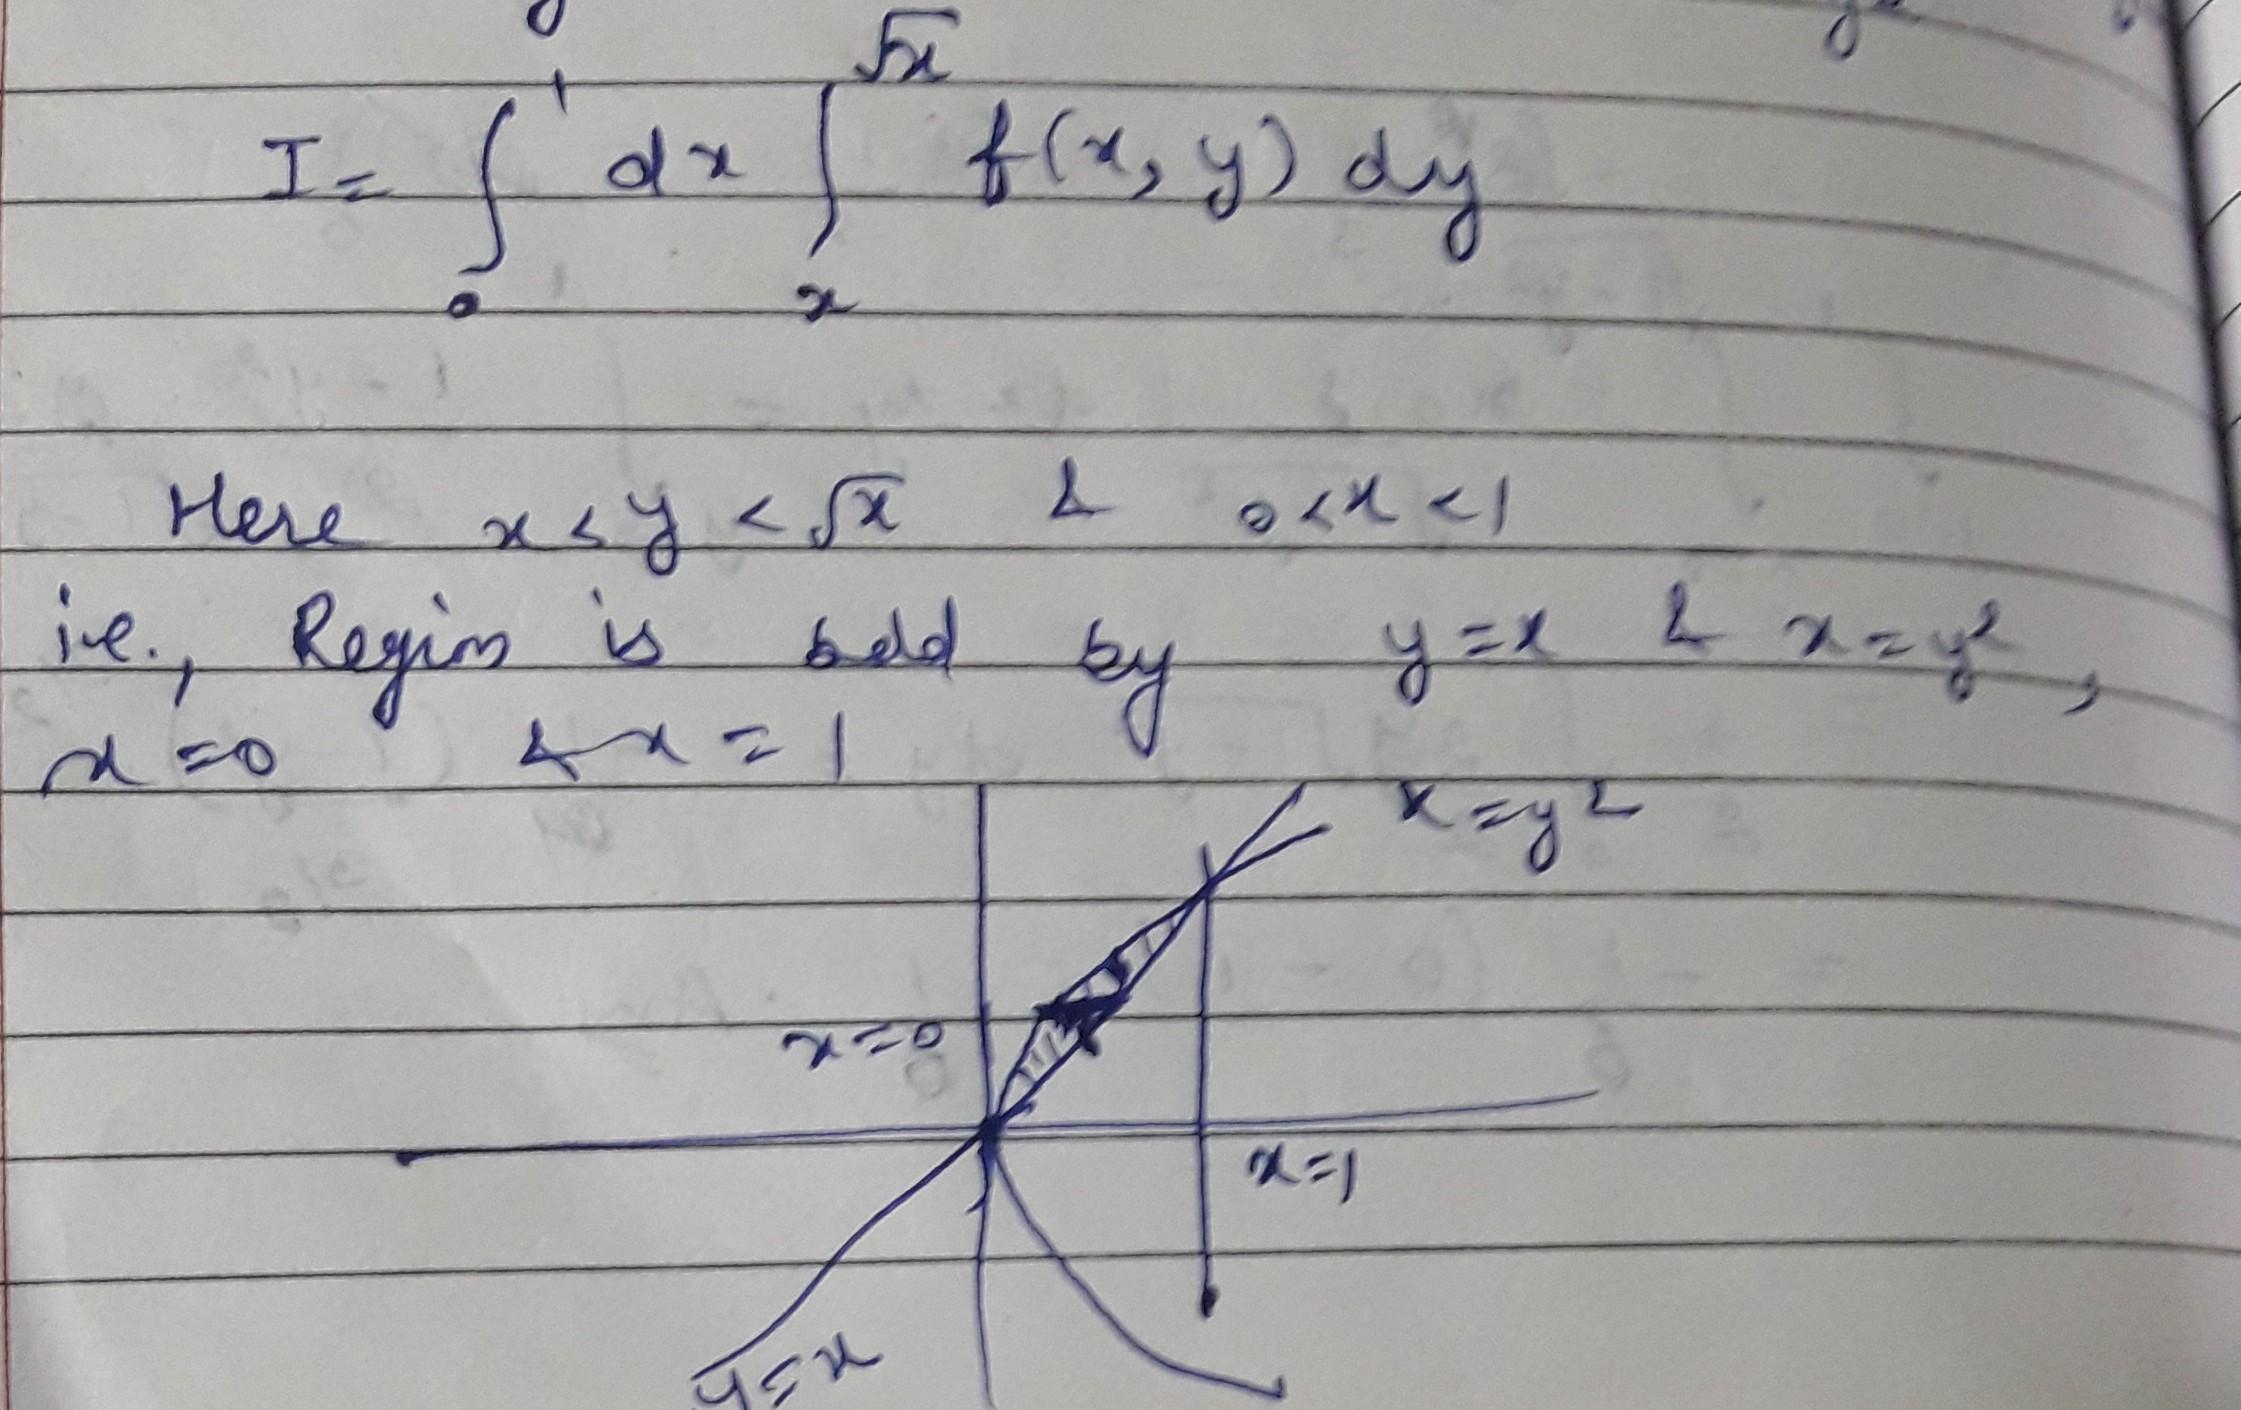 I = ∫₀¹ dx ∫ₓ^√x f(x, y) dy
Here x < y < √x & 0 < x < 1
i.e., Region is bdd by y = x & x = y²,
x = 0 & x = 1
x = y²
x = 0
x = 1
y = x